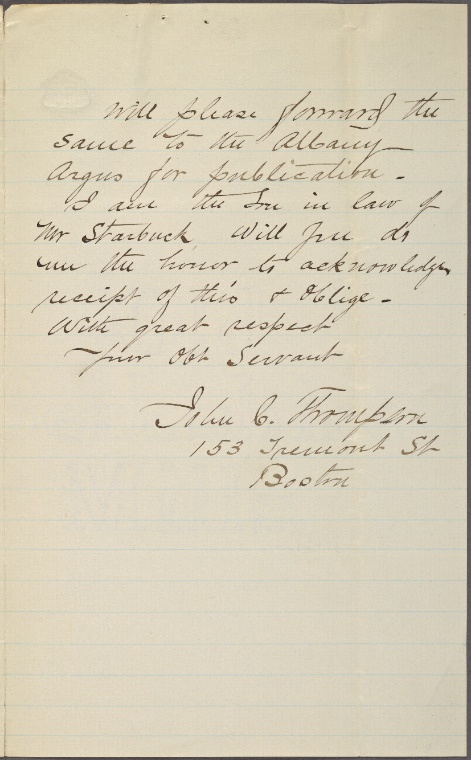 Will please forward the
same to the Albany
Argus for publication -
I am the Son in law of
Mr Starbuck Will you do
me the honor to acknowledge
receipt of this & Oblige -
With great respect
Your Obt Servant
John C. Thompson
153 Tremont St
Boston